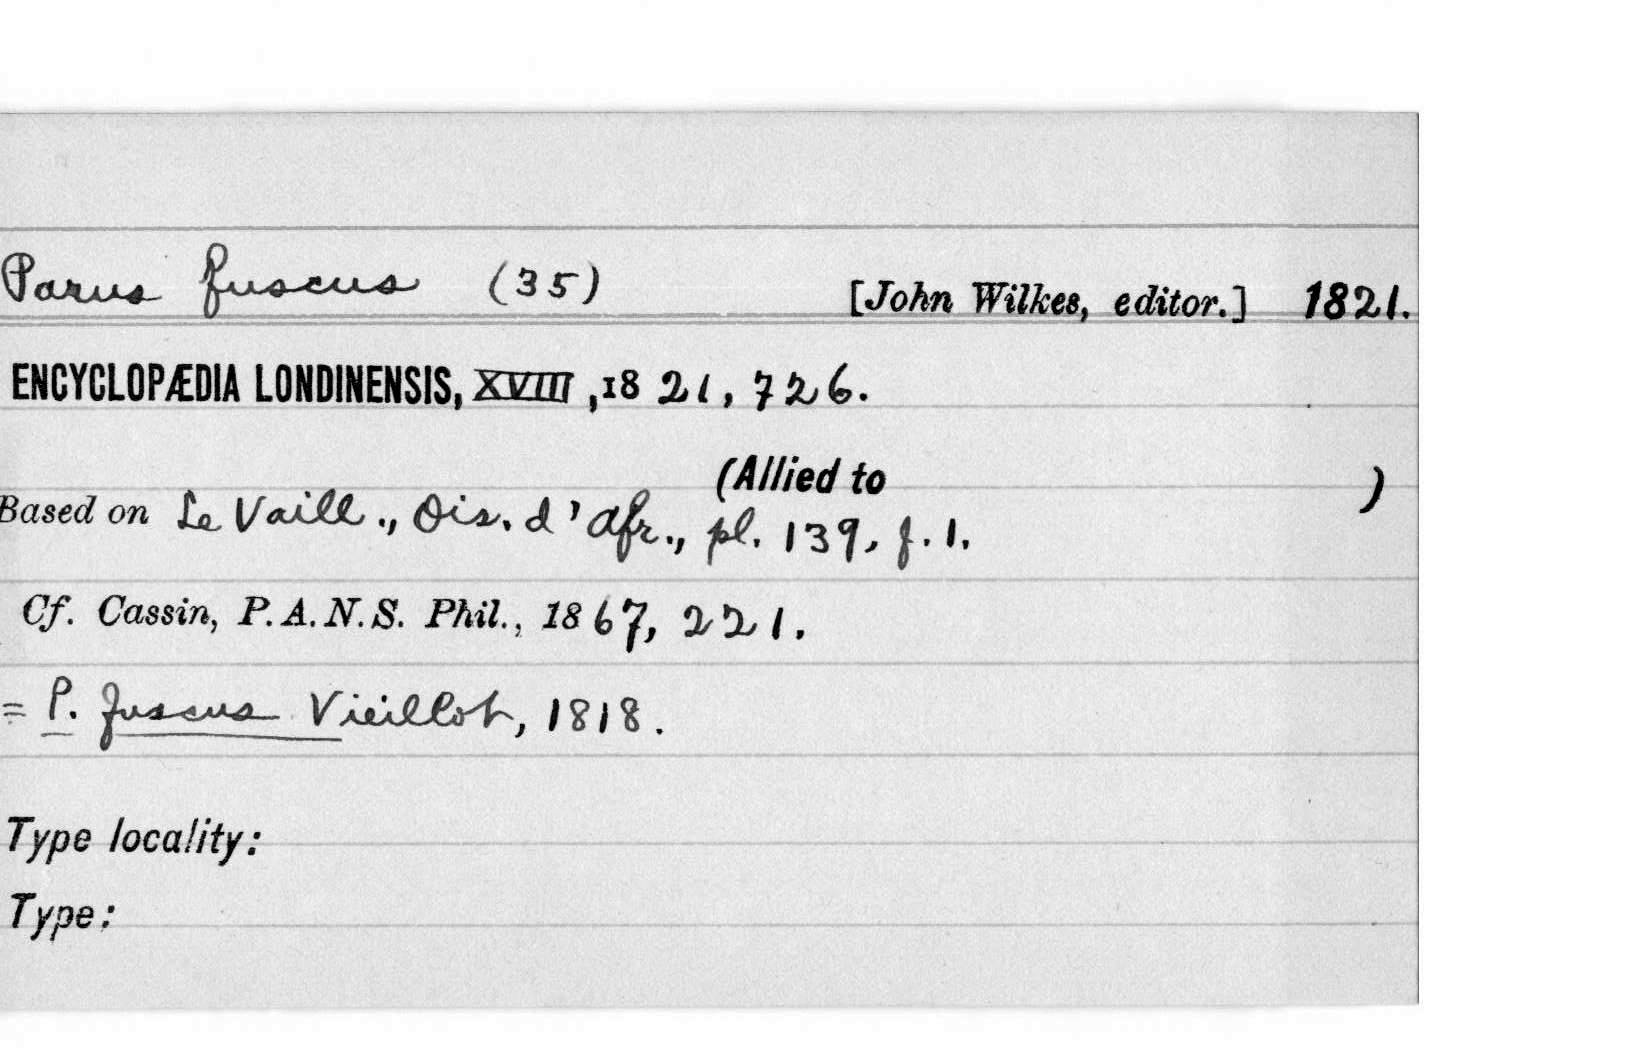 Parus fuscus (35) [John Wilkes, editor.] 1821.
ENCYCLOPÆDIA LONDINENSIS, XVIII, 1821, 726.
(Allied to )
Based on Le Vaill., Ois. d'Afr., pl. 139, f. 1.
Cf. Cassin, P. A. N. S. Phil., 1867, 221.
= P. fuscus Vieillot, 1818.
Type locality:
Type: